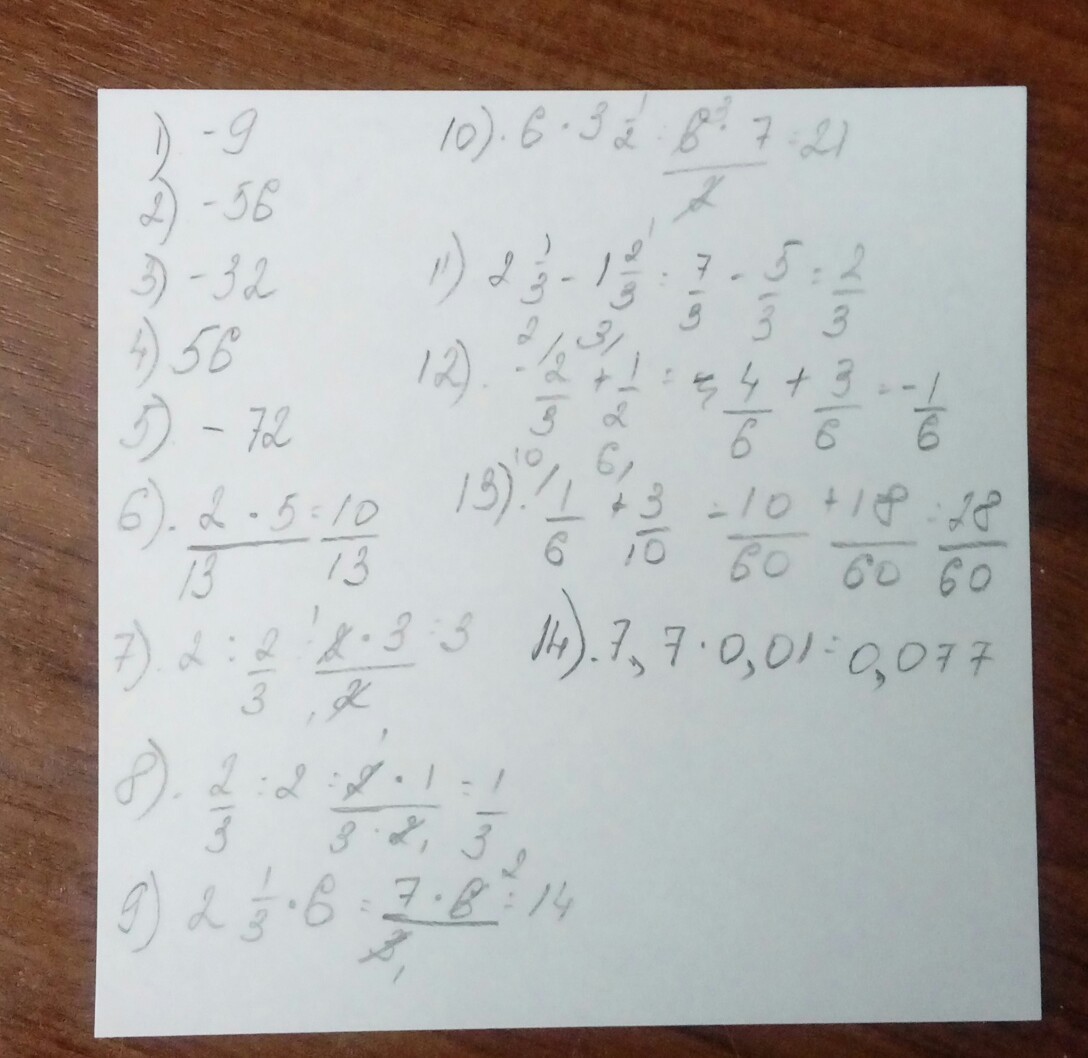 1) -9
2) -56
3) -32
4) 56
5) -72
6). 2·5/13 = 10/13
7). 2 : 2/3 = 2·3/2 = 3
8). 2/3 : 2 = 2·1/3·2 = 1/3
9) 2 1/3 · 6 = 7·6/3 = 14
10). 6 · 3 1/2 = 6·7/2 = 21
11) 2 1/3 - 1 2/3 = 7/3 - 5/3 = 2/3
12). -2/3 + 1/2 = -4/6 + 3/6 = -1/6
13). 1/6 + 3/10 = 10/60 + 18/60 = 28/60
14). 7,7·0,01 = 0,077